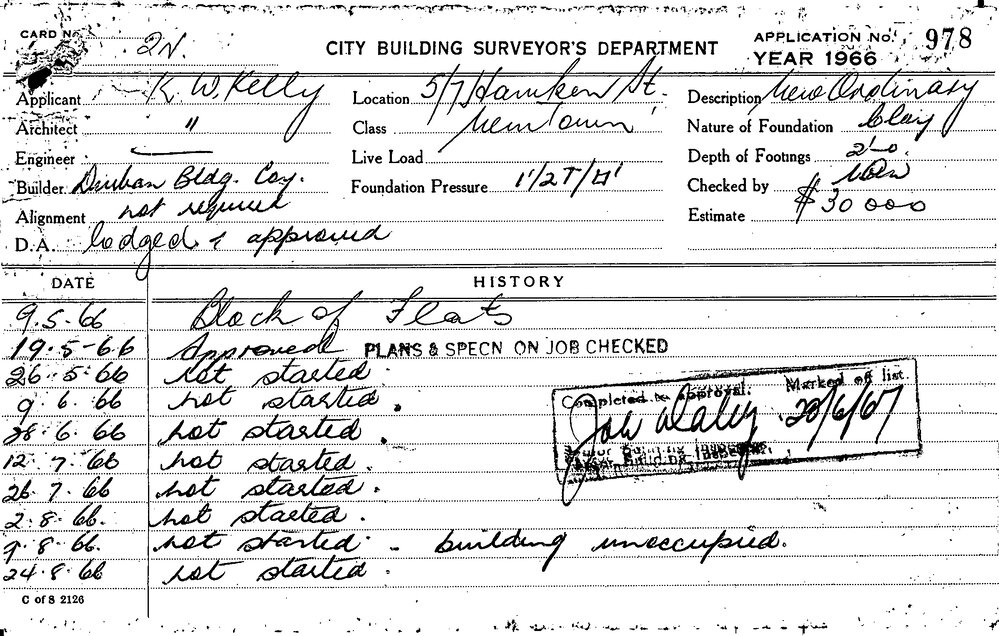 CARD No. 2N.
CITY BUILDING SURVEYOR'S DEPARTMENT
APPLICATION No. 978
YEAR 1966
Applicant K. W. Kelly
Location 5/7 St.
Description New Ordinary
Architect "
Class Newtown
Nature of Foundation Clay
Engineer —
Live Load
Depth of Footings 2'-0
Builder Durban Bldg. Coy.
Foundation Pressure 1 1/2 T/□'
Checked by
Alignment not required
Estimate $30 000
D.A. lodged & approved
DATE HISTORY
9.5.66 Block of Flats
19.5-66 Approved PLANS & SPECN ON JOB CHECKED
26.5.66 not started
9.6.66 not started.
28.6.66 not started.
12.7.66 not started.
26.7.66 not started.
2.8.66. not started.
9.8.66. not started - building unoccupied.
24.8.66 not started.
Completed to approval. Marked off list.
20/6/67
Building Inspector.
C of S 2126